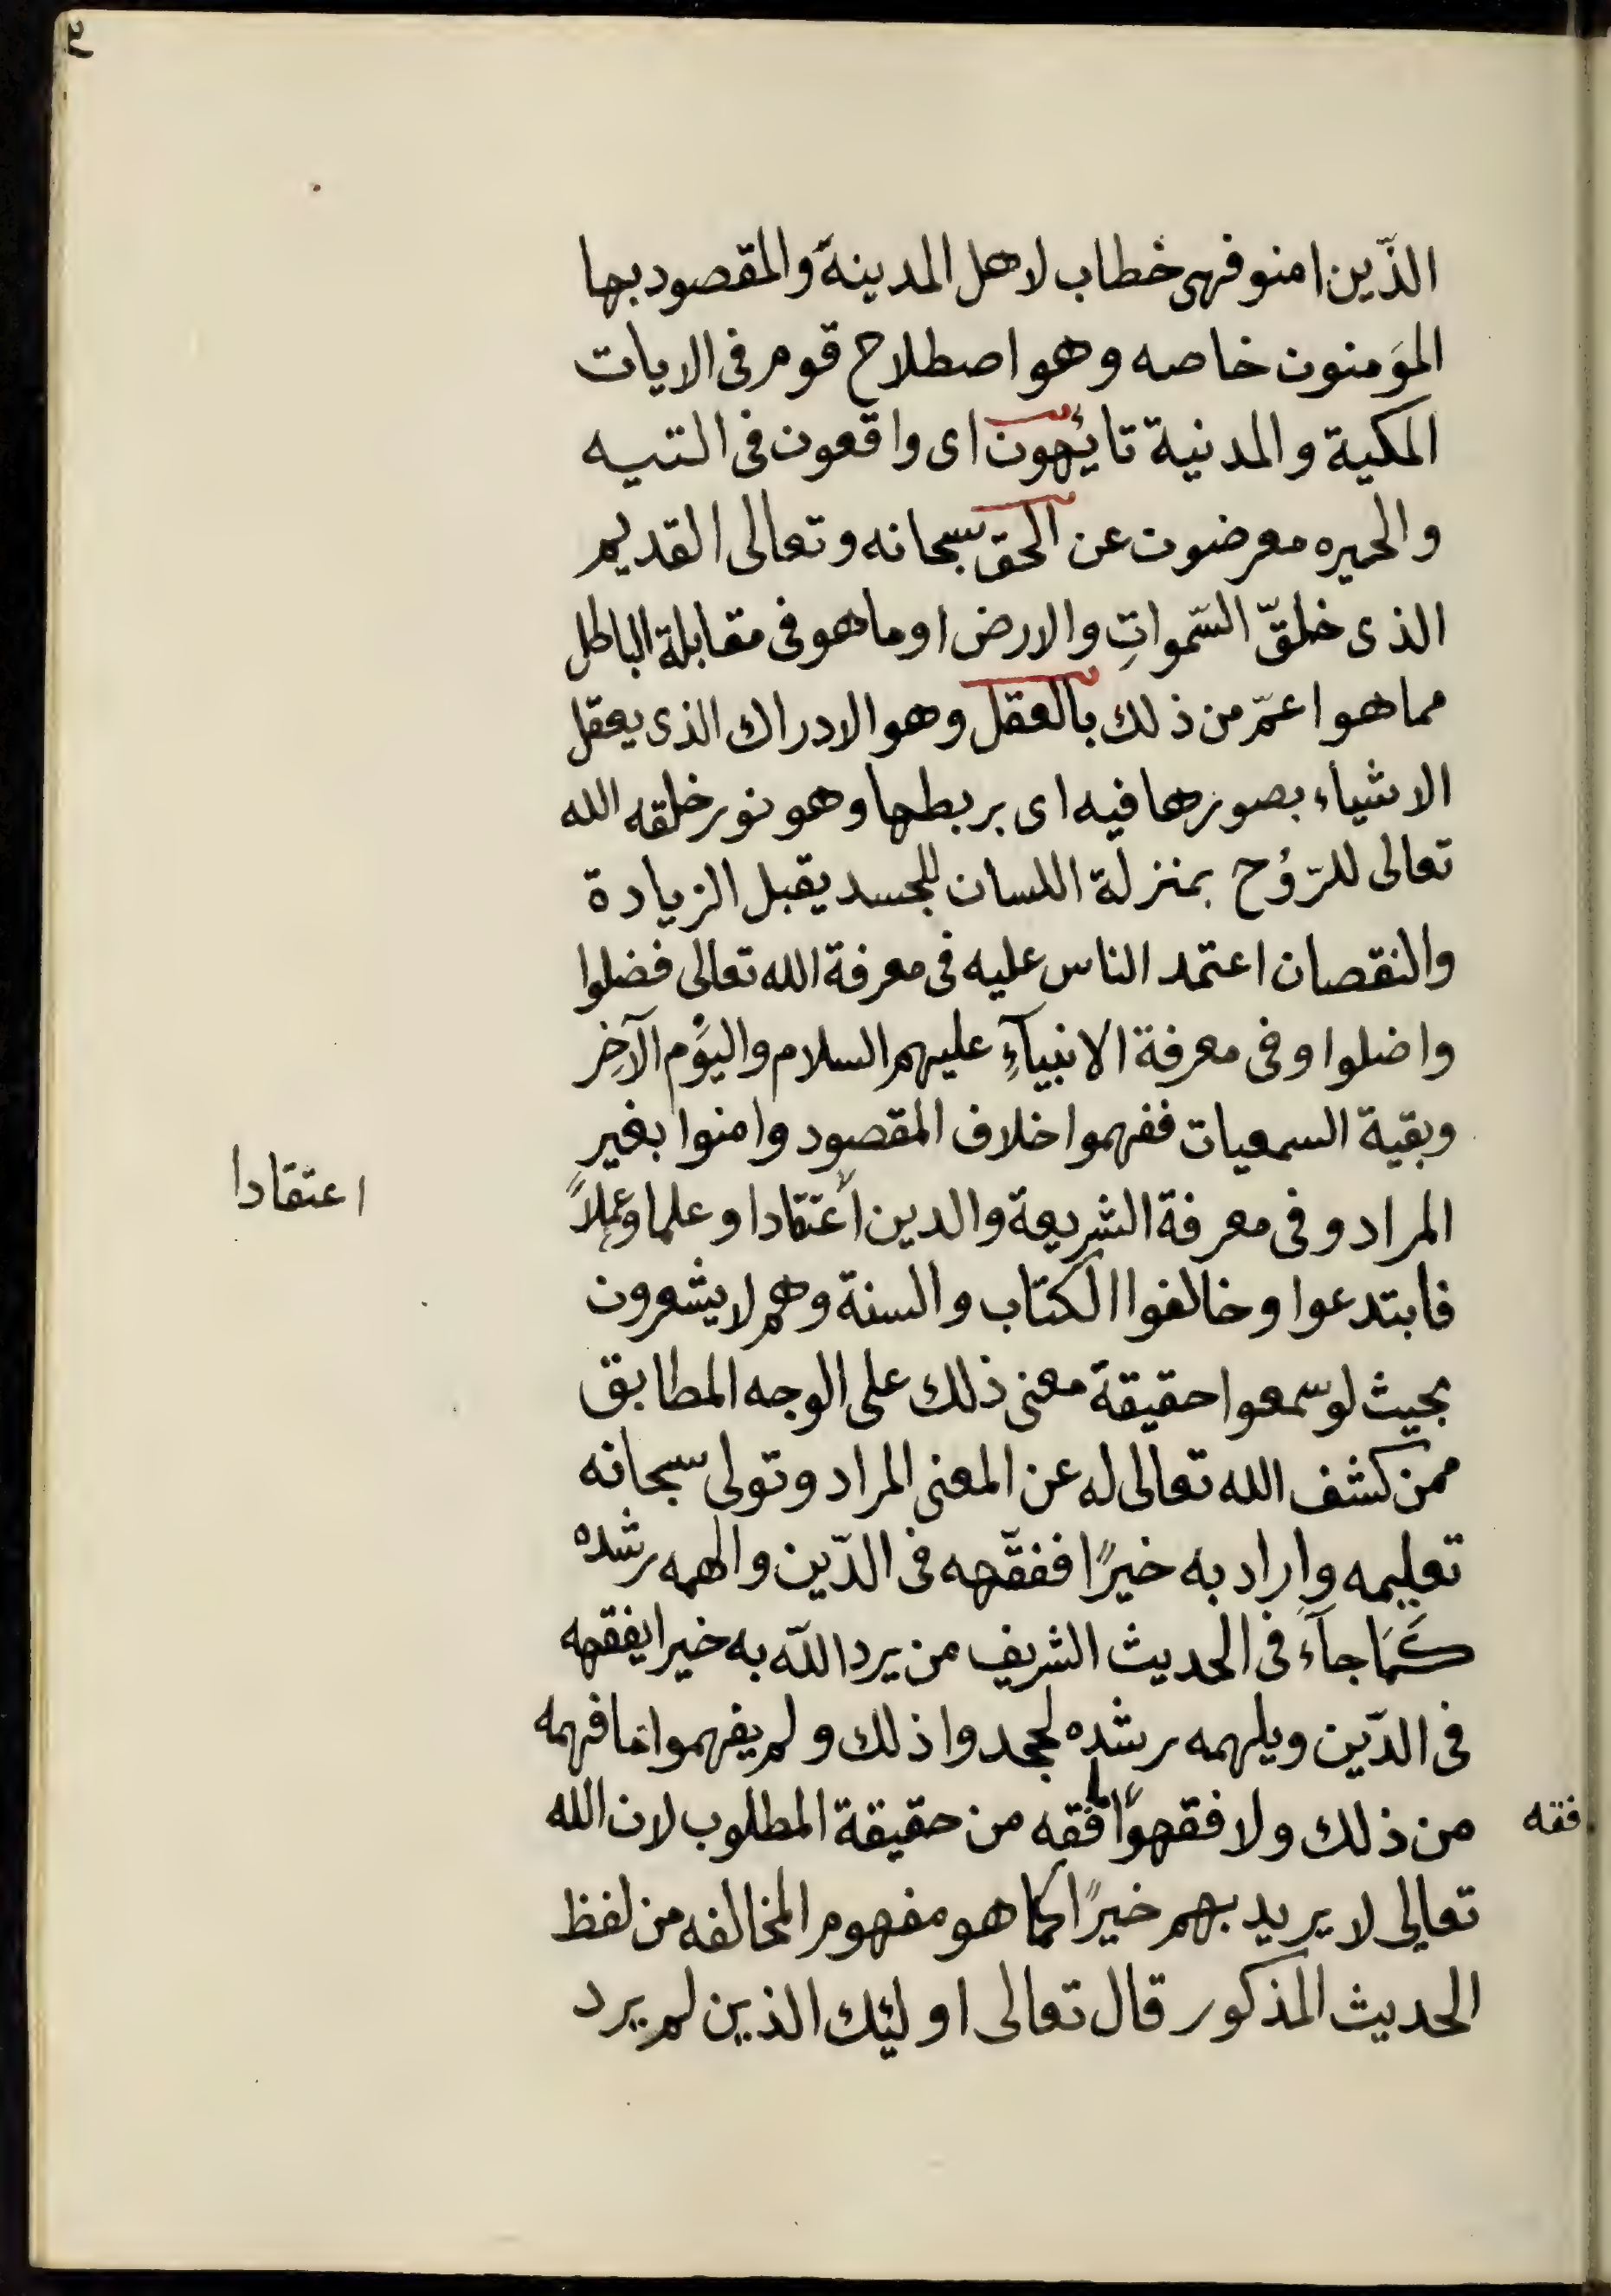 ٢
الذّين امنو فهى خطاب لاهل المدينة والمقصود بها
المؤمنون خاصه وهو اصطلاح قوم فى الايات
المكية والمدنية تايهون اى واقعون فى التيه
والحيره معرضون عن الحق سبحانه وتعالى القديم
الذى خلق السّمواتِ والارض او ما هو فى مقابلة الباطل
مما هو اعمّ من ذلك بالعقل وهو الادراك الذى يعقل
الاشياء بصورها فيه اى يربطها وهو نور خلقه الله
تعالى للرّوُح بمنزلة اللسان للجسد يقبل الزيادة
والنقصان اعتمد الناس عليه فى معرفة الله تعالى فضلوا
واضلوا وفى معرفة الانبيآءِ عليهم السلام واليوْم الآخِر
وبقية السمعيات ففهموا خلاف المقصود وامنوا بغير
المراد وفى معرفة الشريعة والدين اعتقادا وعلما وعملاً
اعتقادا
فابتدعوا وخالفوا الكتاب والسنة وهم لا يشعرون
بحيث لو سمعوا حقيقة معنى ذلك على الوجه المطابق
ممن كشف الله تعالى له عن المعنى المراد وتولى سبحانه
تعليمه واراد به خيرًا ففقّهه فى الدّين والهمه رشده
كَمَا جآءَ فى الحديث الشريف من يرد اللّه به خيرا يفقهه
فى الدّين ويلهمه رشده لجحدوا ذلك ولم يفهموا ما فهمه
من ذلك ولا فقهوا ما فقه من حقيقة المطلوب لان الله
فقه
تعالى لا يريد بهم خيرًا كما هو مفهوم المخالفه من لفظ
الحديث المذكور قال تعالى اولئك الذين لم يرد